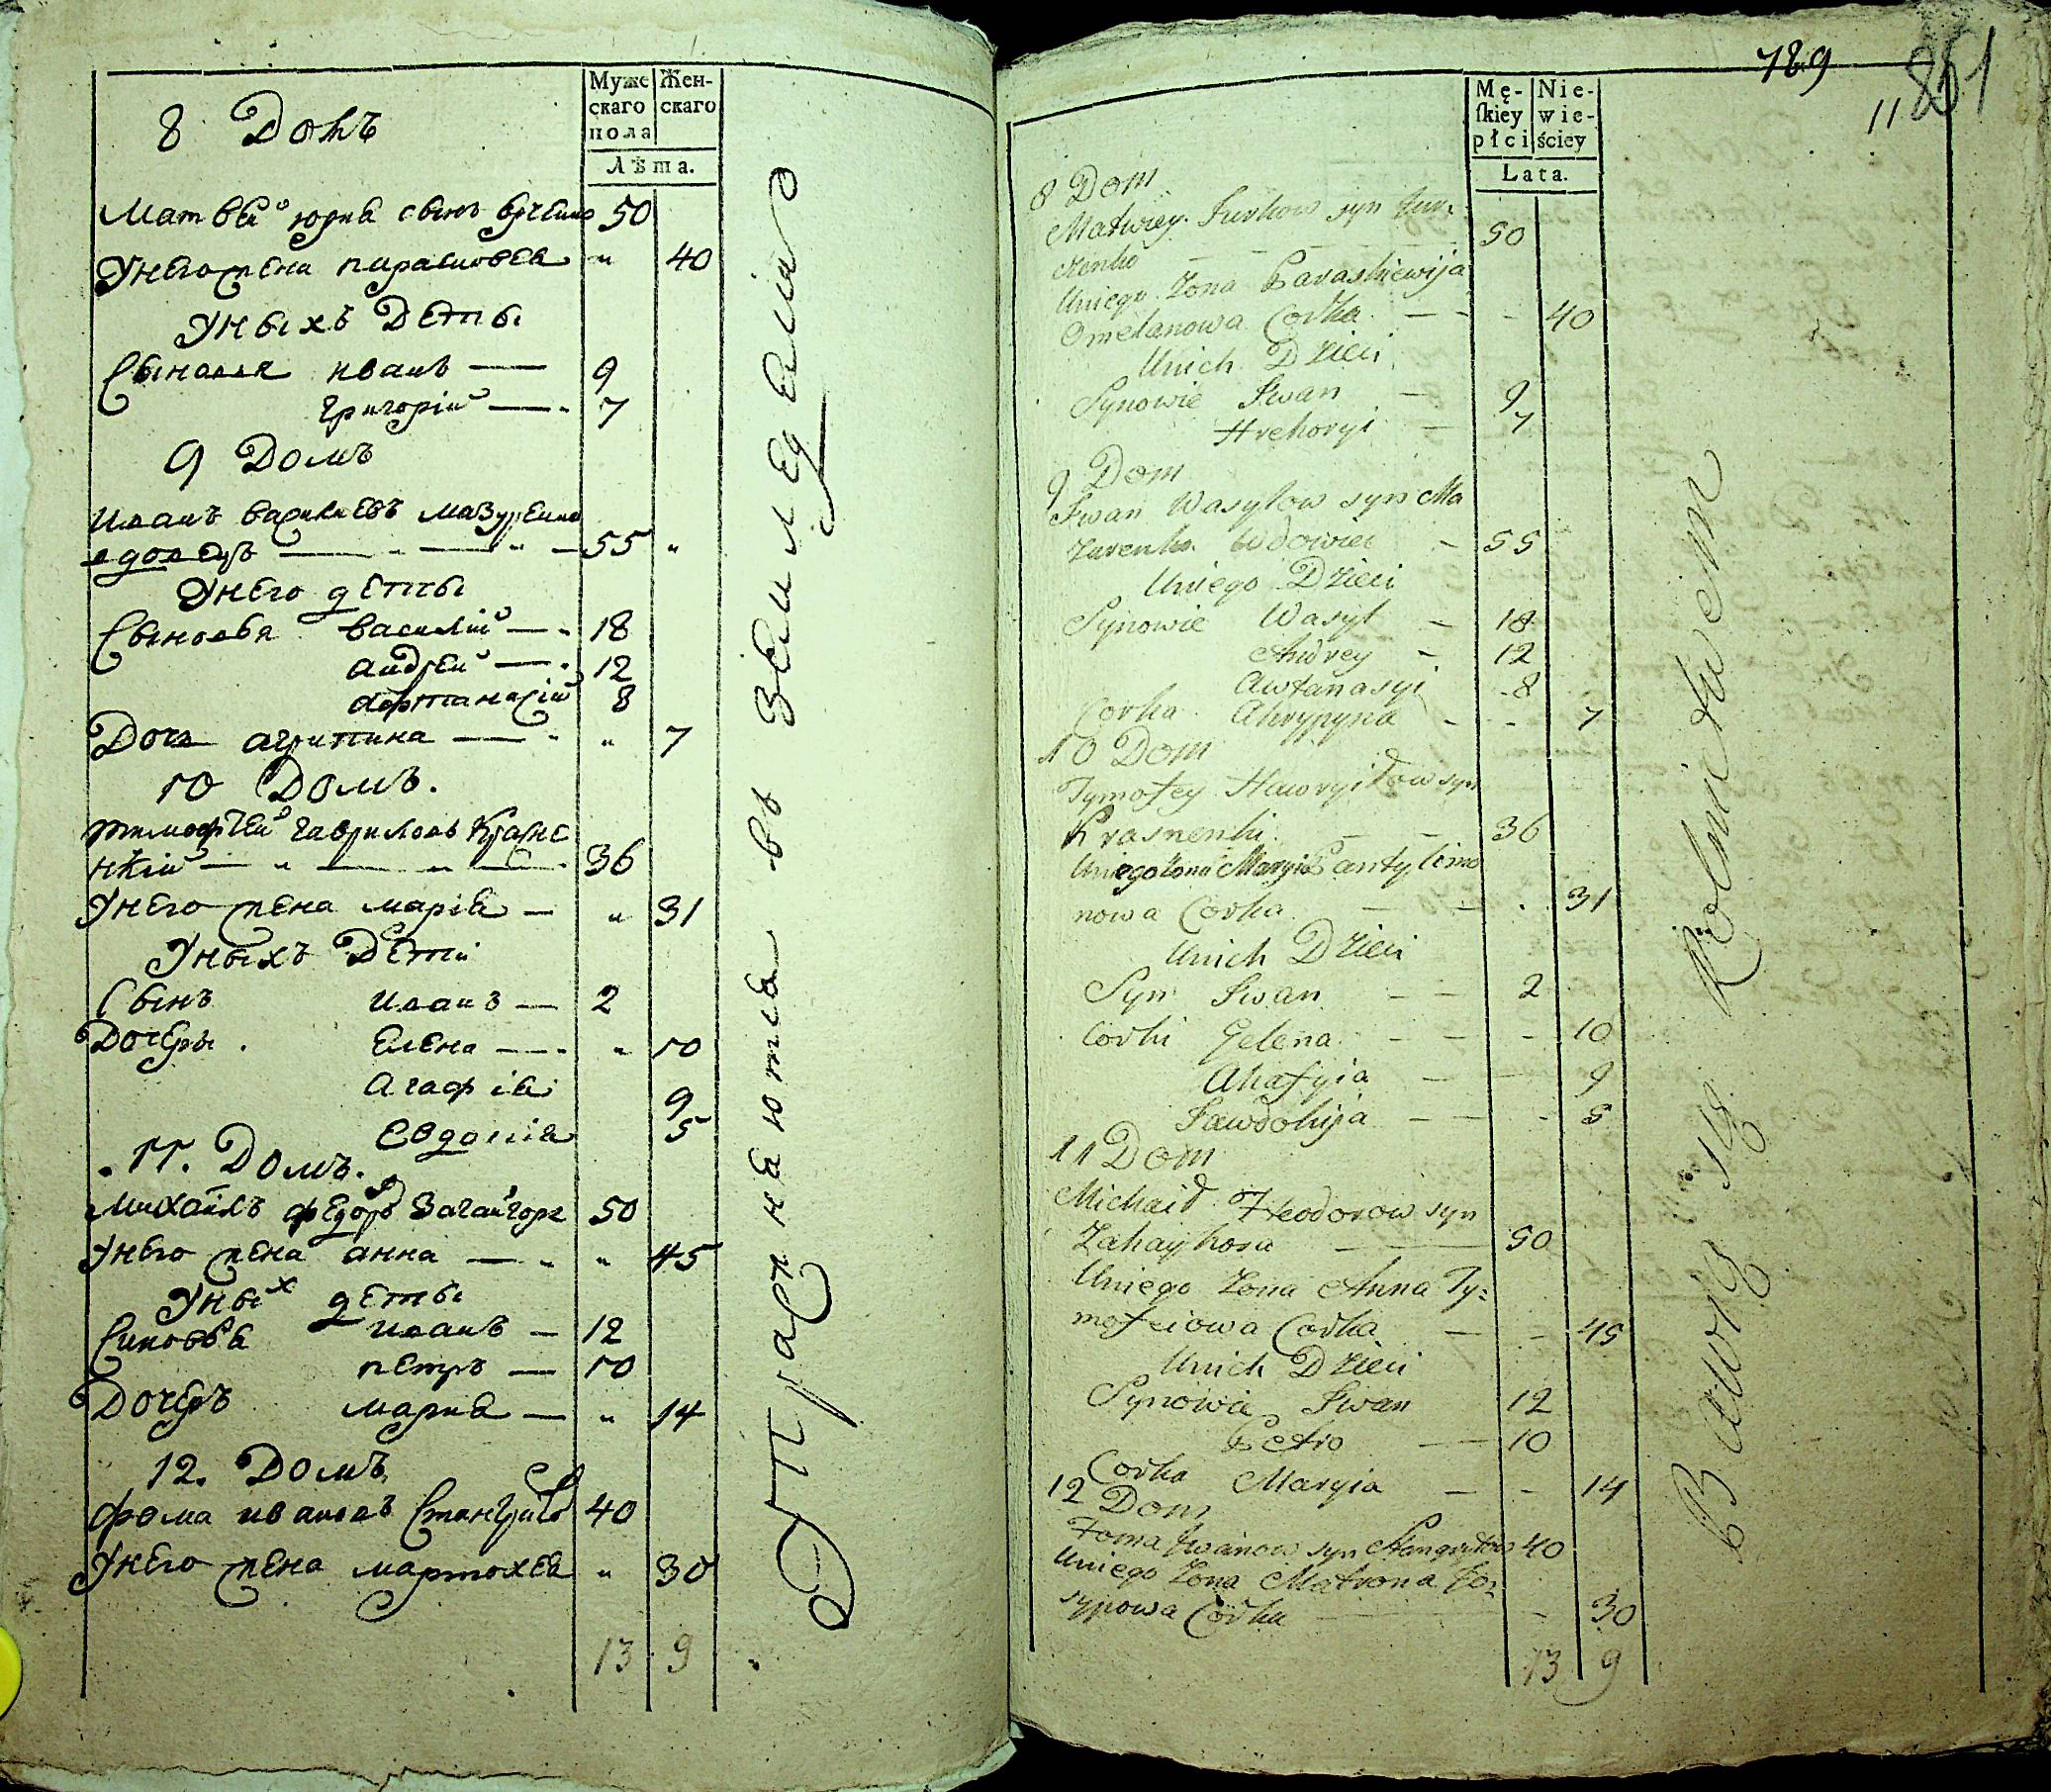 Муже
скаго
пола
Жен-
скаго
Лѣта.
8 Домъ
Матвей юрив сынъ 50
Унего жена парасковея " 40
Уныхъ Дети
Сыновья иванъ — 9
григорій — 7
9 Домъ
Иванъ васильевъ мазуренко
вдовецъ — 55 "
Унего дети
Сыновья василій — 18
андрей — 12
афтанасій 8
Дочь агрипина — " 7
10 Домъ.
тимофѣй гавриловъ Красне
нкій — " — " — 36
Унего жена марія — " 31
Уныхъ Дети
Сынъ иванъ — 2
Дочери. Елена — " 10
Агафія 9
Евдокія 5
11. Домъ.
михаилъ федоръ Загайгора 50
Унего жена анна — " 45
Уных дети
Синовья иванъ — 12
петръ — 10
Дочеръ мария — " 14
12. Домъ
фома ивановъ 40
Унего жена " 30
13 9
Упражняются въ земледелию
789
11 851
Mę-
ſkiey
płci
Nie-
wie-
ściey
Lata.
8 Dom
Matwiey Jurkow syn Jur-
czenko — 50
Uniego Żona Paraskiewija
Omelanowa Corka — 40
Unich Dzieci
Synowie Iwan — 9
Hrehoryi — 7
9 Dom
Iwan Wasylow syn Ma
zurenko Wdowiec — 55
Uniego Dzieci
Synowie Wasyl — 18
Andrey — 12
Awtanasyi 8
Corka Ahrypyna — 7
10 Dom
Tymofey Hawryiłow syn
Krasnenki — 36
Uniego Żona Maryia Pantylimo
nowa Corka — 31
Unich Dzieci
Syn Iwan — 2
Corki Jelena — 10
Ahafyia — 9
Jawdokija — 5
11 Dom
Michaił Fteodorow syn
Zahayhora — 50
Uniego Żona Anna Ty-
mofeiowa Corka — 45
Unich Dzieci
Synowie Iwan 12
Petro — 10
Corka Maryia — 14
12 Dom
Foma Iwanow syn 40
Uniego Żona Matrona Jo-
sypowa Corka — 30
13 9
Bawią się Rolnictwem